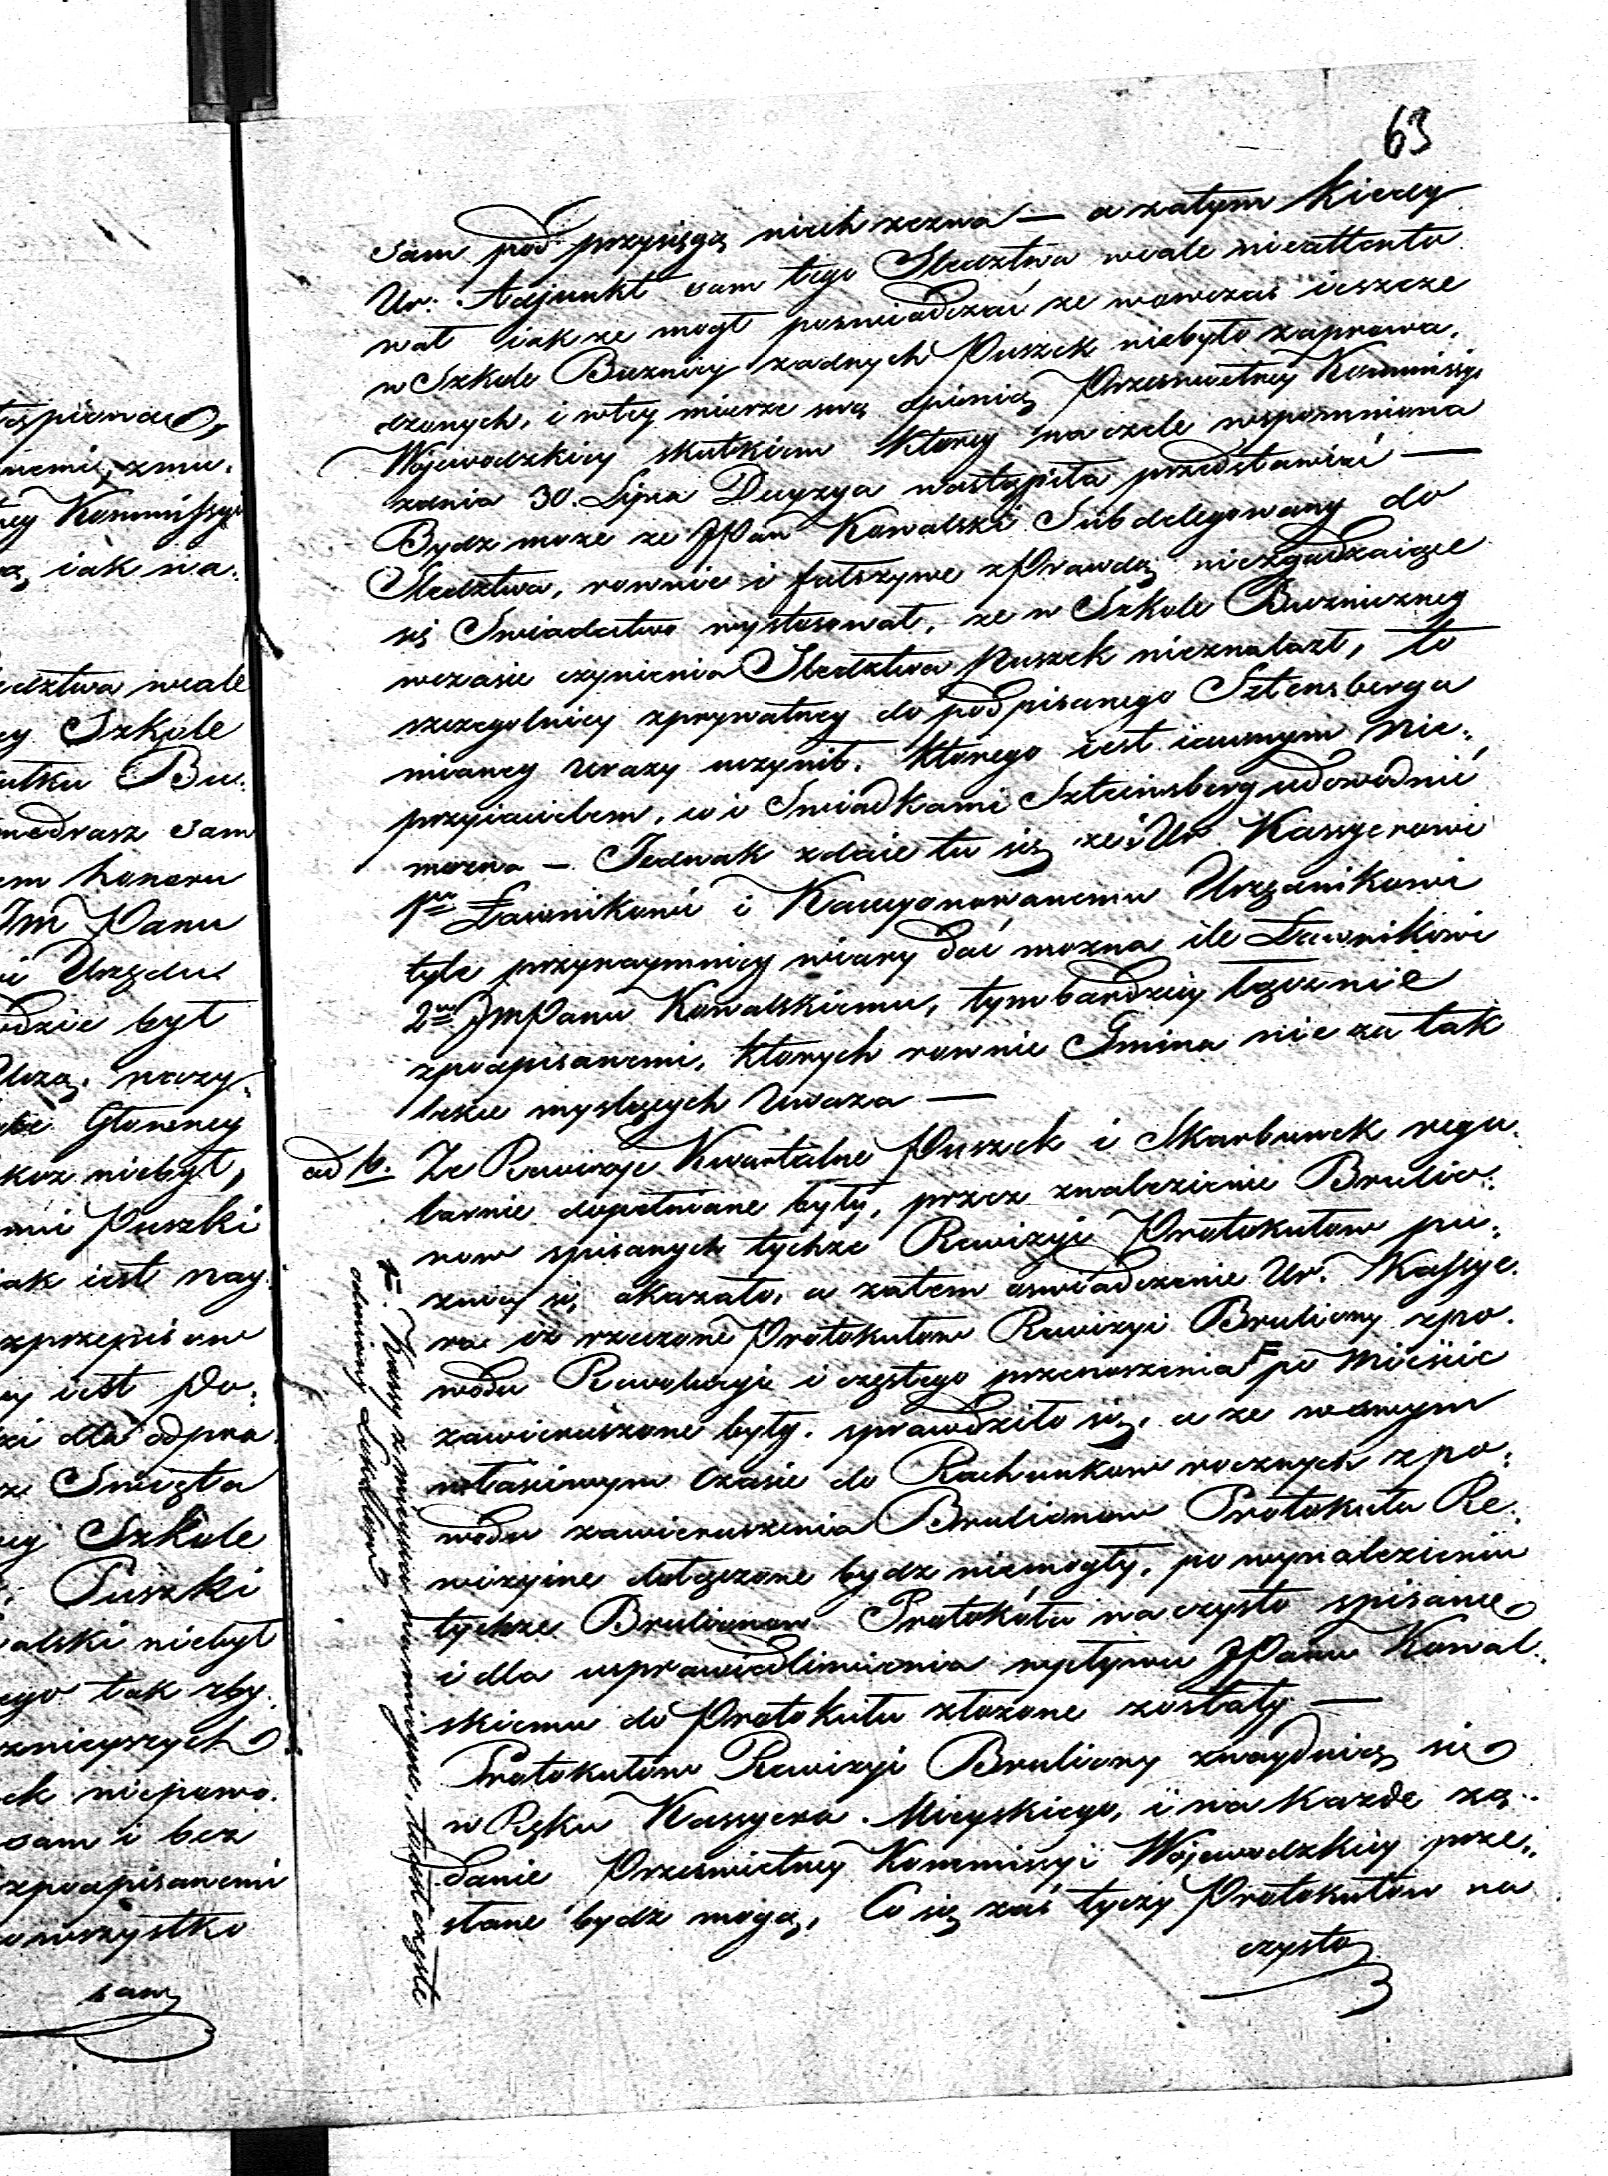 63
sam pod przysięgą niech zezna — a zatym kiedy
Ur: Adjunkt sam tego Sledztwa wcale nieattento
wał iak ze mogł poswiadczać ze wowczas ieszcze
w Szkole Buznicy zadnych Puszek niebyło zaprowa„
dzonych, i wtey mierze swą opinią Przeswietney Kommissyi
Wojewodzkiey skutkiem ktorey na czele wspomniona
zdnia 30. Lipca Decyzya nastąpiła przedstawić —
Bydz moze ze JPan Kowalski Subdelegowany do
Sledztwa, rownie i fałszywe z Prawdą niezgadzaiące
się Swiadectwo wystosował, ze w Szkole Buzniczney
wczasie czynienia Sledztwa Puszek nieznalazł, to
szczegolniey zprywatney do podpisanego Sztensberga
mianey Urazy uczynił. Ktorego iest iawnym Nie„
przyiacielem, co i Swiadkami Szteinsberg udowodnić
mozna — Jednak zdaie tu się ze i Ur Kassyerowi
1m Ławnikowi i Kaucyonowanemu Urzędnikowi
tyle przynaymniey wiary dać mozna ile Ławnikowi
2mu JmPanu Kowalskiemu, tymbardziey łącznie
zpodpisanemi, ktorych rownie Gmina nie za tak
lekce myslących Uwaza —
ad 16. Ze Rewizye Kwartalne Puszek i Skarbunek regu„
larnie dopełniane były, przez znalezienie Brulio„
now spisanych tychze Rewizyi Protokułow pu„
zniey się okazało, a zatem oswiadczenie Ur. Kassye„
ra iz rzeczone Protokułow Rewizyi Bruliony zpo„
wodu Rewolucyi i częstego przenoszenia F po Miescie
zawieruszone były. sprawdziło się, a ze wswym
własciwym czasie do Rachunkow rocznych zpo„
wodu zawieruszenia Brulionow Protokuła Re„
wizyine dołączone bydz niemogły, po wynalezieniu
tychze Brulionow Protokóła na czysto spisane
i dla usprawiedliwienia wpływu JPanu Kowal„
skiemu do Protokułu złozone zostały —
Protokułow Rewizyi Bruliony znayduią się
w Ręku Kassyera Mieyskiego, i na kazde zą„
danie Przeswietney Kommissyi Wojewodzkiey prze„
słane bydz mogą, Co się zaś tyczy Protokułow na
czysto
F. Kassy z mieysca na mieysce,
odmiany Lokallow
nemi, zmu„
ney Kommissyi
ą iak na„
edztwa wcale
ey Szkole
atku Bu„
medrasz sam
em honoru
Jm Panu
i Urzędu
dzie był
Głowney
niebył,
mi Puszki
iak iest nay„
zprzepisow
y iest Po„
zi dla odpra„
z Swięta
ey Szkole
Puszki
alski niebył
ego tak zby„
znieyszych
ek niepowo„
sam i bez
zpodpisanemi
owszystko
sam